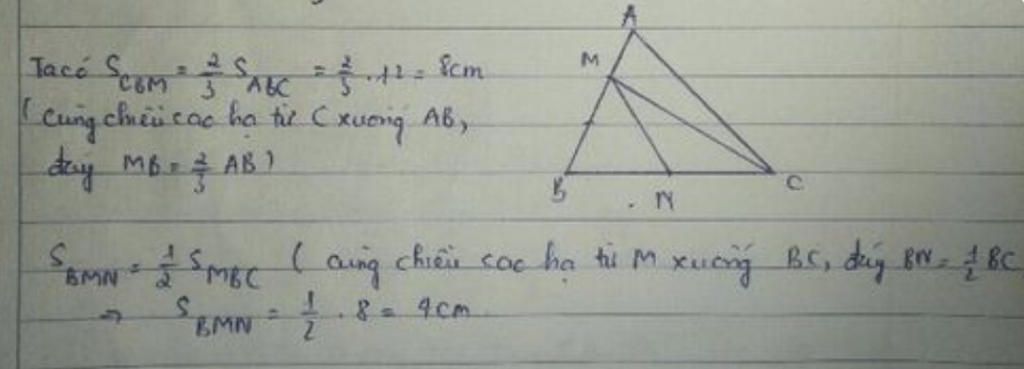 Ta có S_CBM = 2/3 S_ABC = 2/3 . 12 = 8cm
( cùng chiều cao hạ từ C xuống AB,
đáy MB = 2/3 AB )
A
M
B
N
C
S_BMN = 1/2 S_MBC ( cùng chiều cao hạ từ M xuống BC, đáy BN = 1/2 BC
⇒ S_BMN = 1/2 . 8 = 4cm